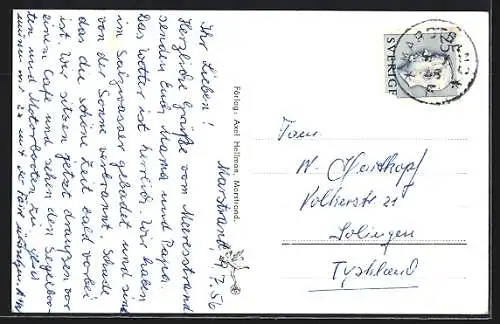 Marstrand, 9.7.56
Ihr Lieben!
Herzliche Grüße vom Marstrand
senden Euch, Mama und Papa.
Das Wetter ist herrlich. Wir haben
im Salzwasser gebadet und sind
von der Sonne verbrannt. Schade
das die schöne Zeit bald vorbei
ist. Wir sitzen jetzt draussen vor
einem Cafe und sehen den Segelboo-
ten und Motorbooten zu.
Förlag: Axel Hellman, Marstrand.
25
SVERIGE
Fam.
W. Hartkopf
Volkerstr 21
Solingen
Tyskland